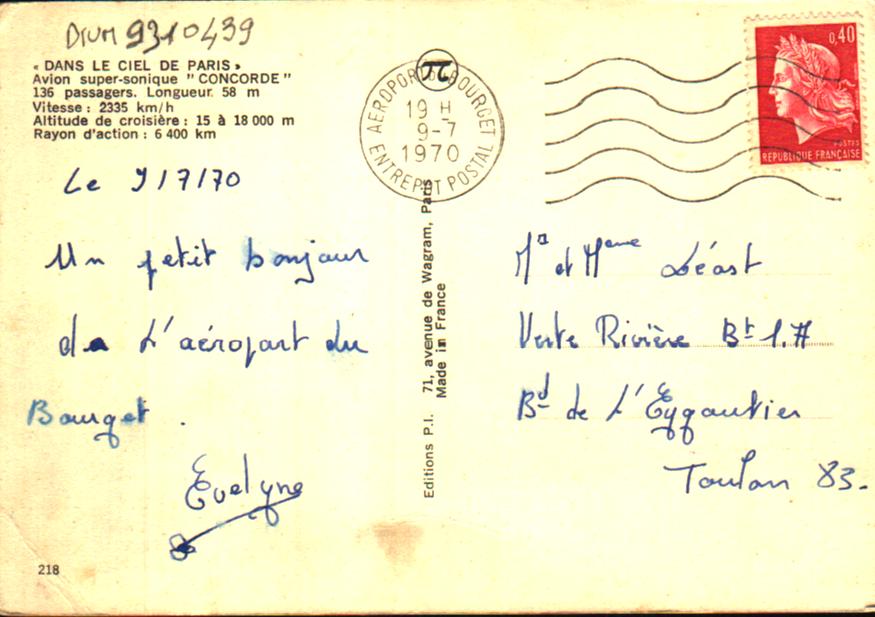 DRUM 9310439
« DANS LE CIEL DE PARIS »
Avion super-sonique " CONCORDE "
136 passagers. Longueur 58 m
Vitesse : 2335 km/h
Altitude de croisière : 15 à 18 000 m
Rayon d'action : 6 400 km
Le 9/7/70
Un petit bonjour
de L'aéroport du
Bourget .
Evelyne
218
AEROPORT DU BOURGET
19 H
9-7
1970
ENTREPOT POSTAL
Editions P.I. 71, avenue de Wagram, Paris
Made in France
0,40
POSTES
REPUBLIQUE FRANÇAISE
Mr et Meme Léost
Verte Rivière Bt 1.A
Bd de L'Eygoutier
Toulon 83.